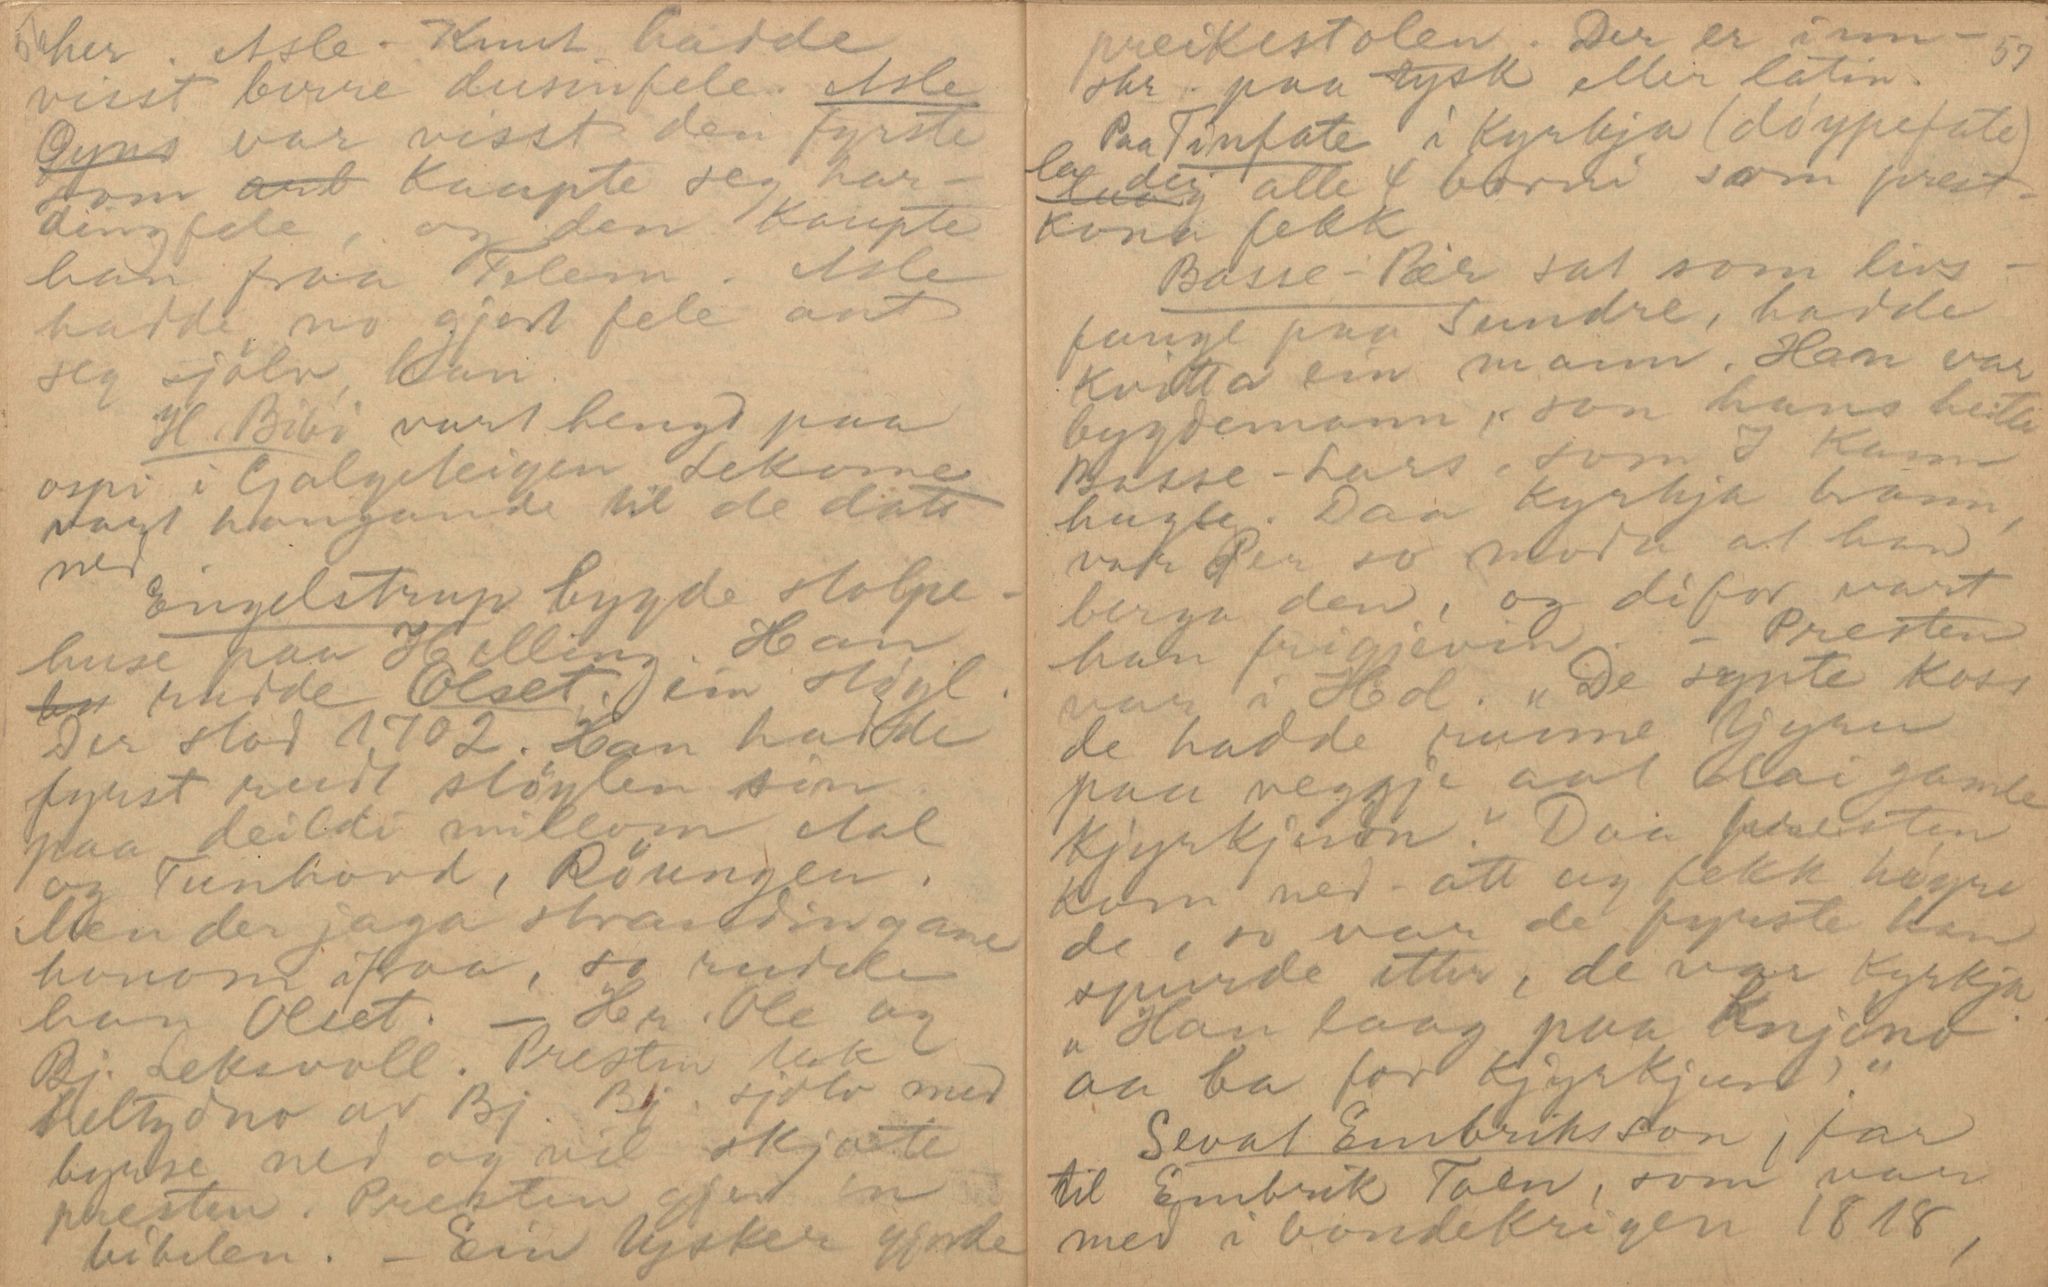 her. Asle-Knut hadde
visst berre dusinfele. Asle
Gyns var visst den fyrste
som kaupte seg har-
dingfele, og den kaupte
han fraa Telem. Asle
hadde no gjort fele aat
seg sjölv, han.
H. Bibi vart hengd paa
ospi i Galgeteigen Lekome
vart hangande til de datt
ned
Engelstrup bygde stolpe-
huse paa Helling. Han
rudde Olset, ein støyl.
Der stod 1702. Han hadde
fyrst rudt støylen sin
paa deildi millom Aal
og Tunhovd, Röungen.
Men der jaga strandingane
honom ifraa, so rudde
han Olset. — Hr. Ole og
Bj. Leksvoll. Presten tok
heltydno av Bj. Bj. sjölv med
byrse ned og vil skjote
presten. Presten gjer in
bibelen. — Ein tysker gjorde
57
preikestolen. Der er inn-
skr. paa tysk eller latin.
Paa Tinfate i Kyrkja (döypefate)
laag der alle 4 borni som prest-
kona fekk
Basse-Per sat som livs-
fange paa Sundre, hadde
kvitta ein mann. Han var
bygdemann, son hans heitte
Basse-Lars, som I kann
hugse. Daa Kyrkja brann,
var Per so moda at han
berga den, og difor vart
han frigjevin. — Presten
var i Hol. "De synte koss
de hadde runne tjyru
paa veggji aat dai gamle
kjyrkjun." Daa presten
kom ned-att og fekk høyre
de, so var de fyrste han
spurde etter, de var Kyrkja.
"Han laag paa knjeno
aa ba for kjyrkjun."
Sevat Embriksson, far
til Embrik Toen, som var
med i bondekrigen 1818,